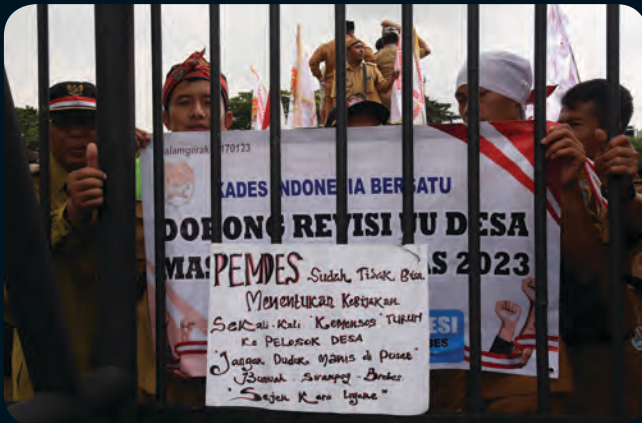 170123
KADES INDONESIA BERSATU
DORONG REVISI UU DESA
2023
PEMDES Sudah Tidak Bisa
Menentukan Kebijakan
Sekali-kali "Kemensos" TURUN
Ke PELOSOK DESA
"Jangan Duduk Manis di Pusat"
Brebes
"Sejen Karo Liyane"